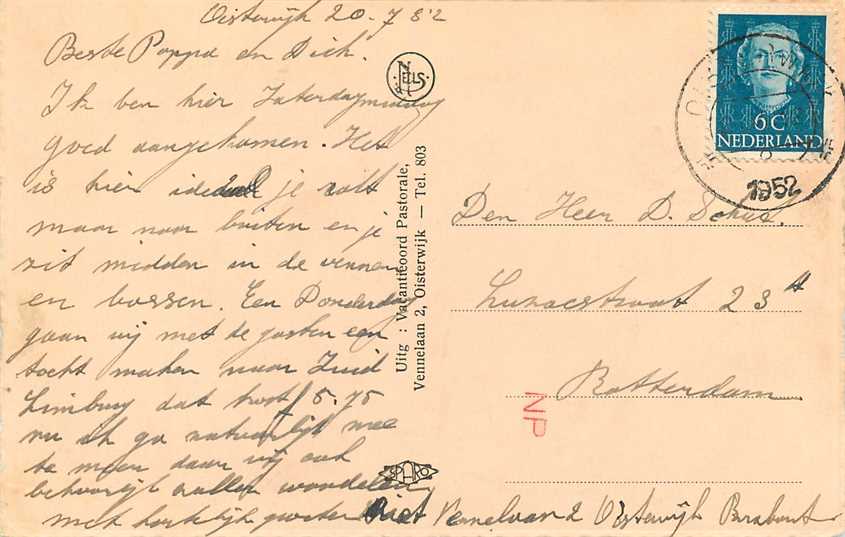 Oisterwijk 20-7 52
Beste Pappa en Dick.
Ik ben hier Zaterdagmiddag
goed aangekomen. Het
is hier ideaal je rolt
maar naar buiten en je
zit midden in de vennen
en bossen. Een Donderdag
gaan wij met de gasten een
tocht maken naar Zuid
Limburg dat kost f 5.75
nu ik ga natuurlijk mee
te meer daar wij ook
behoorlijk zullen wandelen
met hartelijk groeten Riet Vennelaan 2 Oisterwijk Brabant
NELS
Uitg : Vacantieoord Pastorale,
Vennelaan 2, Oisterwijk — Tel. 803
6C
NEDERLAND
1952
Den Heer D.
23
Rotterdam
NP